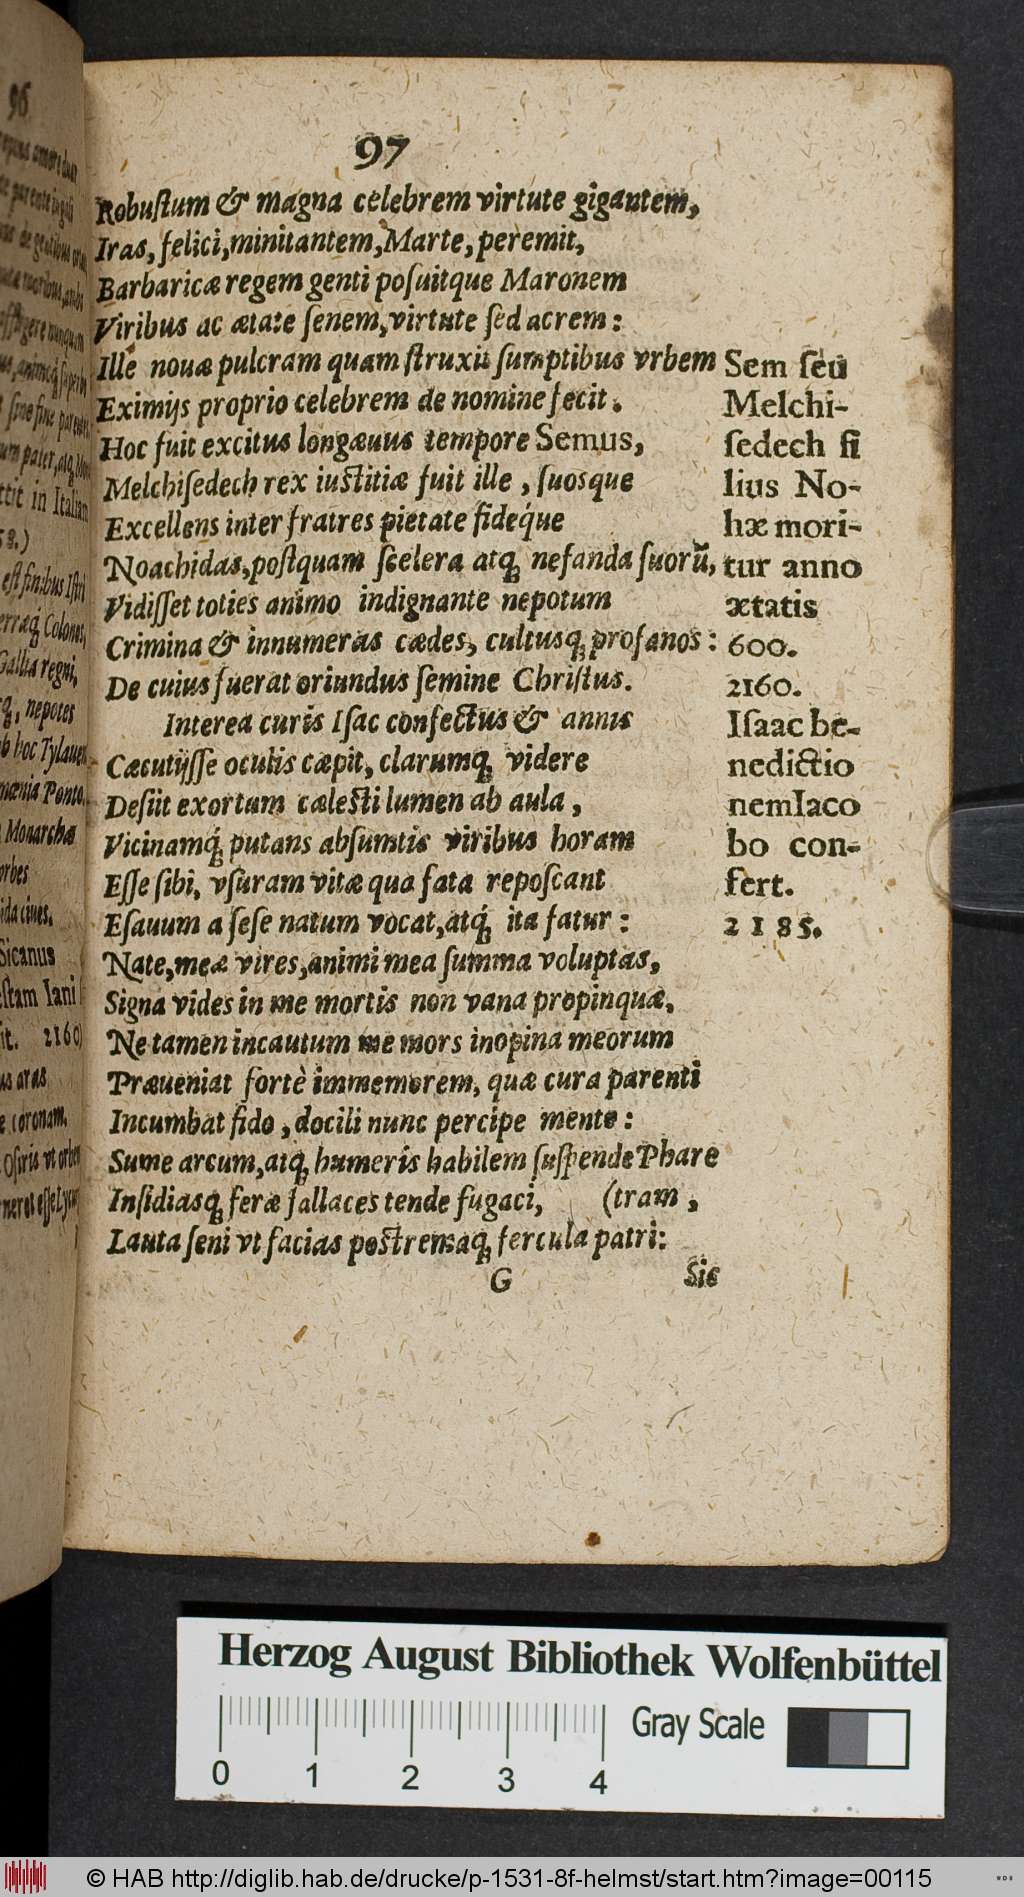 97
Robuſtum & magna celebrem virtute gigantem,
Iras, felici, minitantem, Marte, peremit,
Barbaricæ regem genti poſuitque Maronem
Viribus ac ætate ſenem, virtute ſed acrem:
Ille nouæ pulcram quam ſtruxit ſumptibus vrbem
Eximijs proprio celebrem de nomine fecit.
Hoc fuit excitus longæuus tempore Semus,
Melchiſedech rex iuſtitiæ fuit ille, ſuosque
Excellens inter fratres pietate fidéque
Noachidas, poſtquam ſcelera atq; nefanda ſuorũ,
Vidiſſet toties animo indignante nepotum
Crimina & innumeras cædes, cultusq; profanos:
De cuius fuerat oriundus ſemine Chriſtus.
Interea curis Iſac confectus & annis
Cæcutijſſe oculis cæpit, clarumq; videre
Deſiit exortum cæleſti lumen ab aula,
Vicinamq́; putans abſumtis viribus horam
Eſſe ſibi, vſuram vitæ qua fata repoſcant
Eſauum a ſeſe natum vocat, atq́; ita fatur:
Nate, meæ vires, animi mea ſumma voluptas,
Signa vides in me mortis non vana propinquæ,
Ne tamen incautum me mors inopina meorum
Præueniat fortè immemorem, quæ cura parenti
Incumbat fido, docili nunc percipe mente:
Sume arcum, atq; humeris habilem ſuſpende Phare
Inſidiasq; feræ fallaces tende fugaci, (tram,
Lauta ſeni vt facias poſtremaq; fercula patri:
G Sic
Sem ſeu
Melchi-
ſedech fi
lius No-
hæ mori-
tur anno
ætatis
600.
2160.
Iſaac be-
nedictio
nem Iaco
bo con-
fert.
2185.
96
in Italiam
Colonos,
Gallia regni,
nepotes
Ponto,
Monarchæ
orbes
Sicanus
Iani
2160)
aras
coronam,
Oſiris vt orbem
Herzog August Bibliothek Wolfenbüttel
0 1 2 3 4
Gray Scale
© HAB http://diglib.hab.de/drucke/p-1531-8f-helmst/start.htm?image=00115